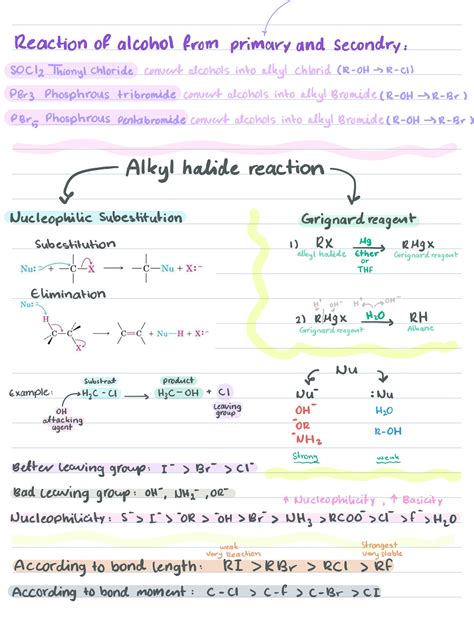 Reaction of alcohol from primary and secondry:
SOCl2 Thionyl Chloride convert alcohols into alkyl chlorid (R-OH → R-Cl)
PBr3 Phosphrous tribromide convert alcohols into alkyl Bromide (R-OH → R-Br)
PBr5 Phosphrous pentabromide convert alcohols into alkyl Bromide (R-OH → R-Br)
Alkyl halide reaction
Nucleophilic Subestitution
Subestitution
Nu:⁻ + -C-X → -C-Nu + X:⁻
Elimination
Nu:⁻
H C-C X → C=C + Nu-H + X:⁻
Example:
Substrat
H3C-Cl
product
→ H3C-OH + Cl
OH
attacking
agent
leaving
group
Grignard reagent
1) RX Mg → RMgX
alkyl halide
Ether
or
THF
Grignard reagent
H⁺ OH⁻ H⁺ OH⁻
2) RMgx H2O → RH
Grignard reagent
Alkane
Nu
Nu⁻ :Nu
OH⁻ H2O
⁻OR R-OH
⁻NH2
Strong weak
Better leaving group: I⁻ > Br⁻ > Cl⁻
Bad leaving group: OH⁻, NH2⁻, OR⁻
↑ Nucleophilicity, ↑ Basicity
Nucleophilicity: S⁻ > I⁻ > ⁻OR > ⁻OH > Br⁻ > NH3 > RCOO⁻ > Cl⁻ > f⁻ > H2O
weak
very Reaction
Strongest
very stable
According to bond length: RI > RBr > RCl > Rf
According to bond moment: C-Cl > C-f > C-Br > CI